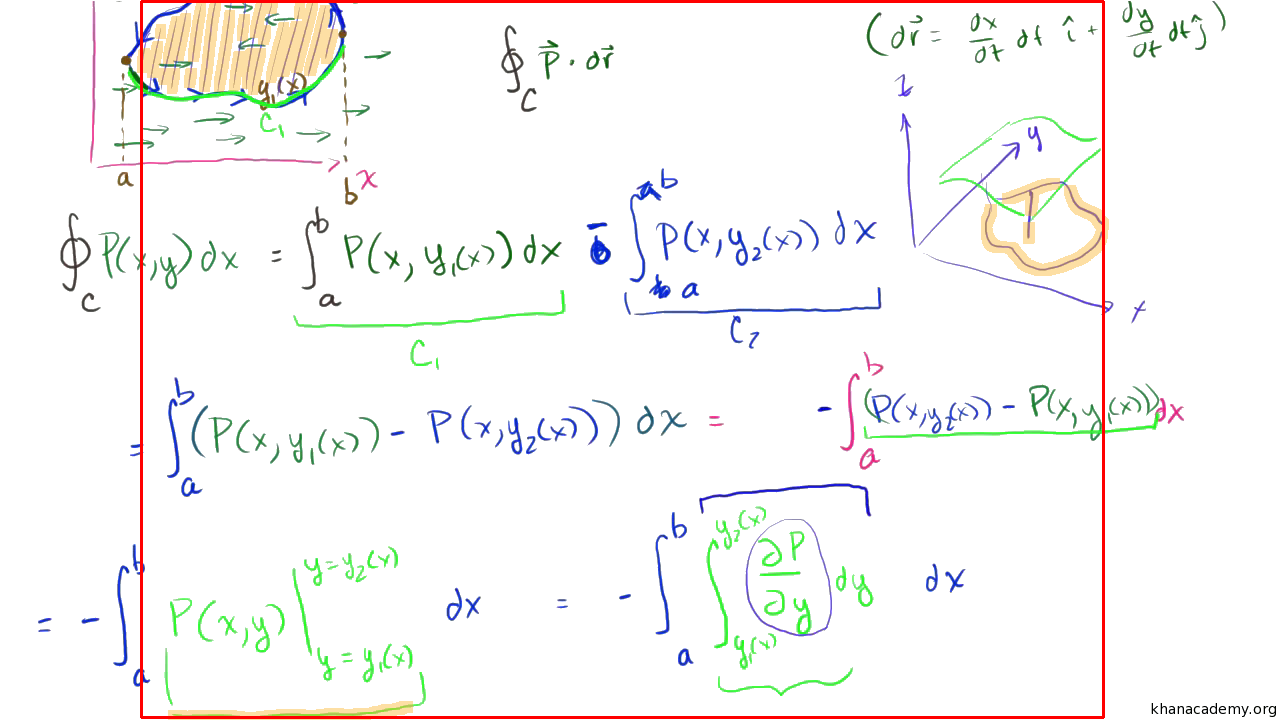 ∮_C P⃗ · dr⃗
(dr⃗ = dx/dt dt î + dy/dt dt ĵ)
y₁(x)
C₁
a b x
z y x
∮_C P(x,y) dx = ∫_a^b P(x, y₁(x)) dx - ∫_a^b P(x, y₂(x)) dx
C₁ C₂
= ∫_a^b (P(x, y₁(x)) - P(x, y₂(x))) dx = - ∫_a^b (P(x, y₂(x)) - P(x, y₁(x))) dx
= - ∫_a^b P(x,y) |_{y = y₁(x)}^{y = y₂(x)} dx = - ∫_a^b ∫_{y₁(x)}^{y₂(x)} ∂P/∂y dy dx
khanacademy.org